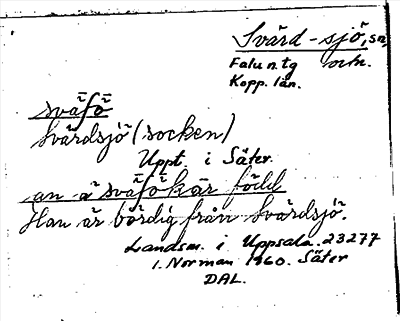 Svärd-sjö, sn,
Falu n. tg och.
Kopp. län.
sväfö
Svärdsjö (socken)
Uppt. i Säter.
an ä sväfökär född
Han är bördig från Svärdsjö.
Landsm. i Uppsala. 23277
1. Norman 1960. Säter
DAL.